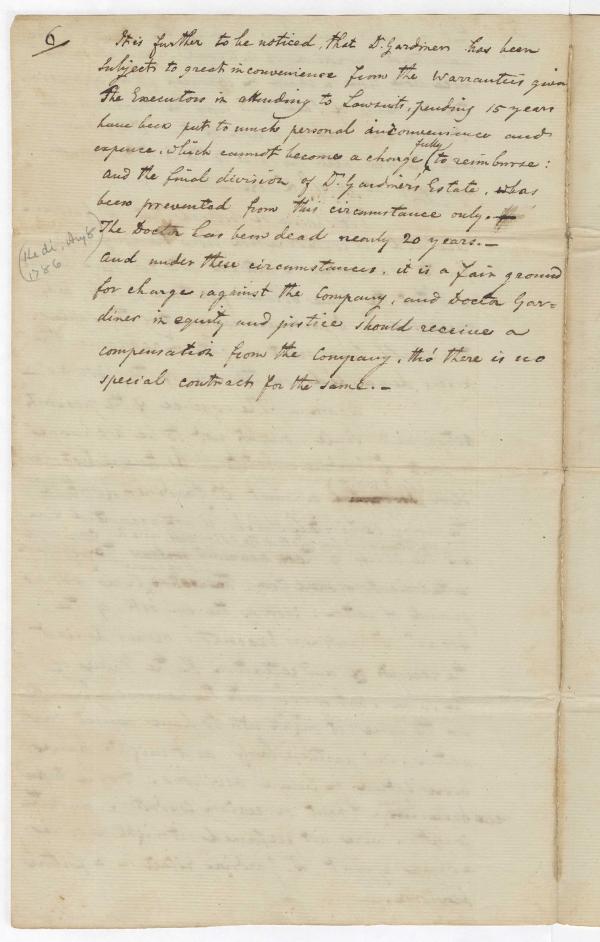 6
It is further to be noticed, that Dr. Gardiner has been
subject to great inconvenience from the warrantees given
The Executors in attending to Lawsuits, pending 15 years
have been put to much personal inconvenience and
expence, which cannot become a charge fully to reimburse:
and the final division of Dr. Gardiner's Estate, has
been prevented from this circumstance only.
The Doctor has been dead nearly 20 years. —
(He di. Aug 8
1786)
and under these circumstances, it is a fair ground
for charge, against the Company, and Doctor Gar=
diner in equity and justice should receive a
compensation from the Company, tho' there is no
special contract for the same. —